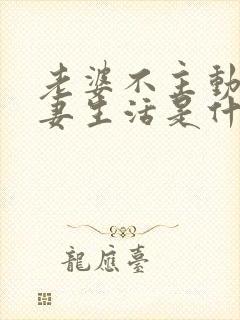 老婆不主動
妻生活是什
龍應臺